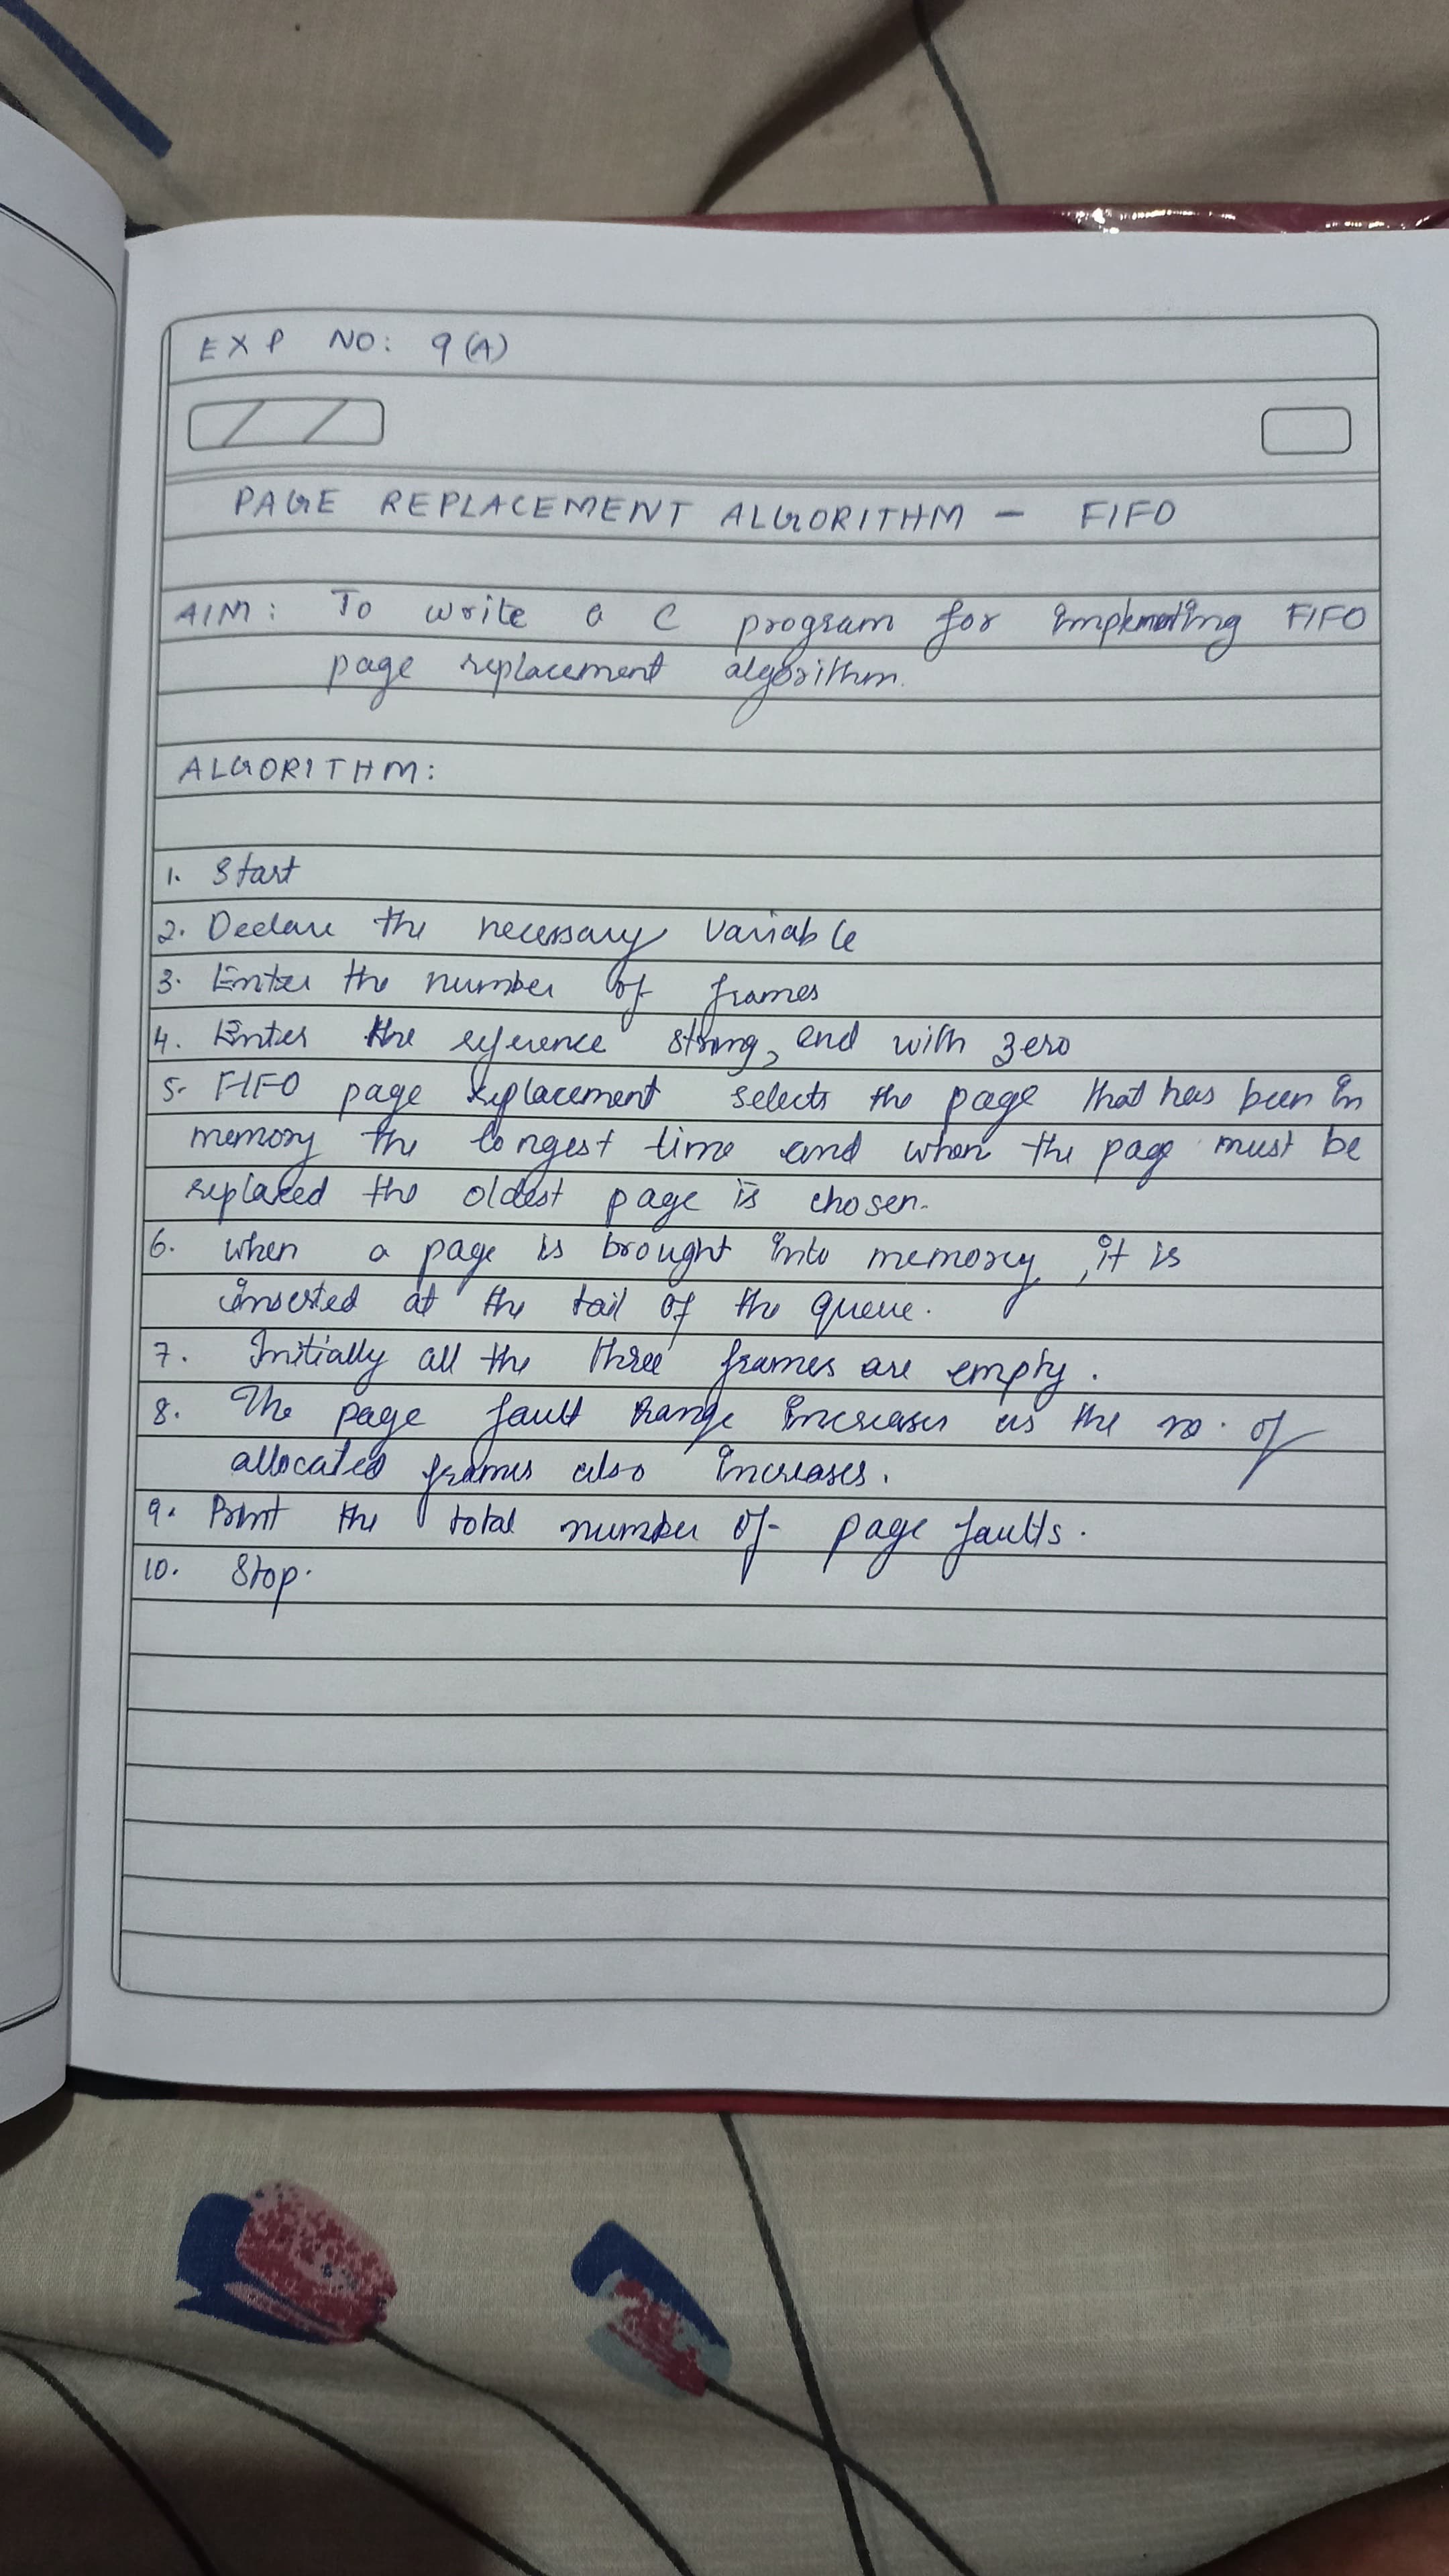 EXP NO: 9(A)
PAGE REPLACEMENT ALGORITHM - FIFO
AIM: To write a C program for implementing FIFO
page replacement algorithm.
ALGORITHM:
1. Start
2. Declare the necessary variable
3. Enter the number of frames
4. Enter the reference string, end with zero
5. FIFO page replacement selects the page that has been in
memory the longest time and when the page must be
replaced the oldest page is chosen.
6. when a page is brought into memory, it is
inserted at the tail of the queue.
7. Initially all the three frames are empty.
8. The page fault range increases as the no. of
allocated frames also increases.
9. Print the total number of page faults.
10. Stop.